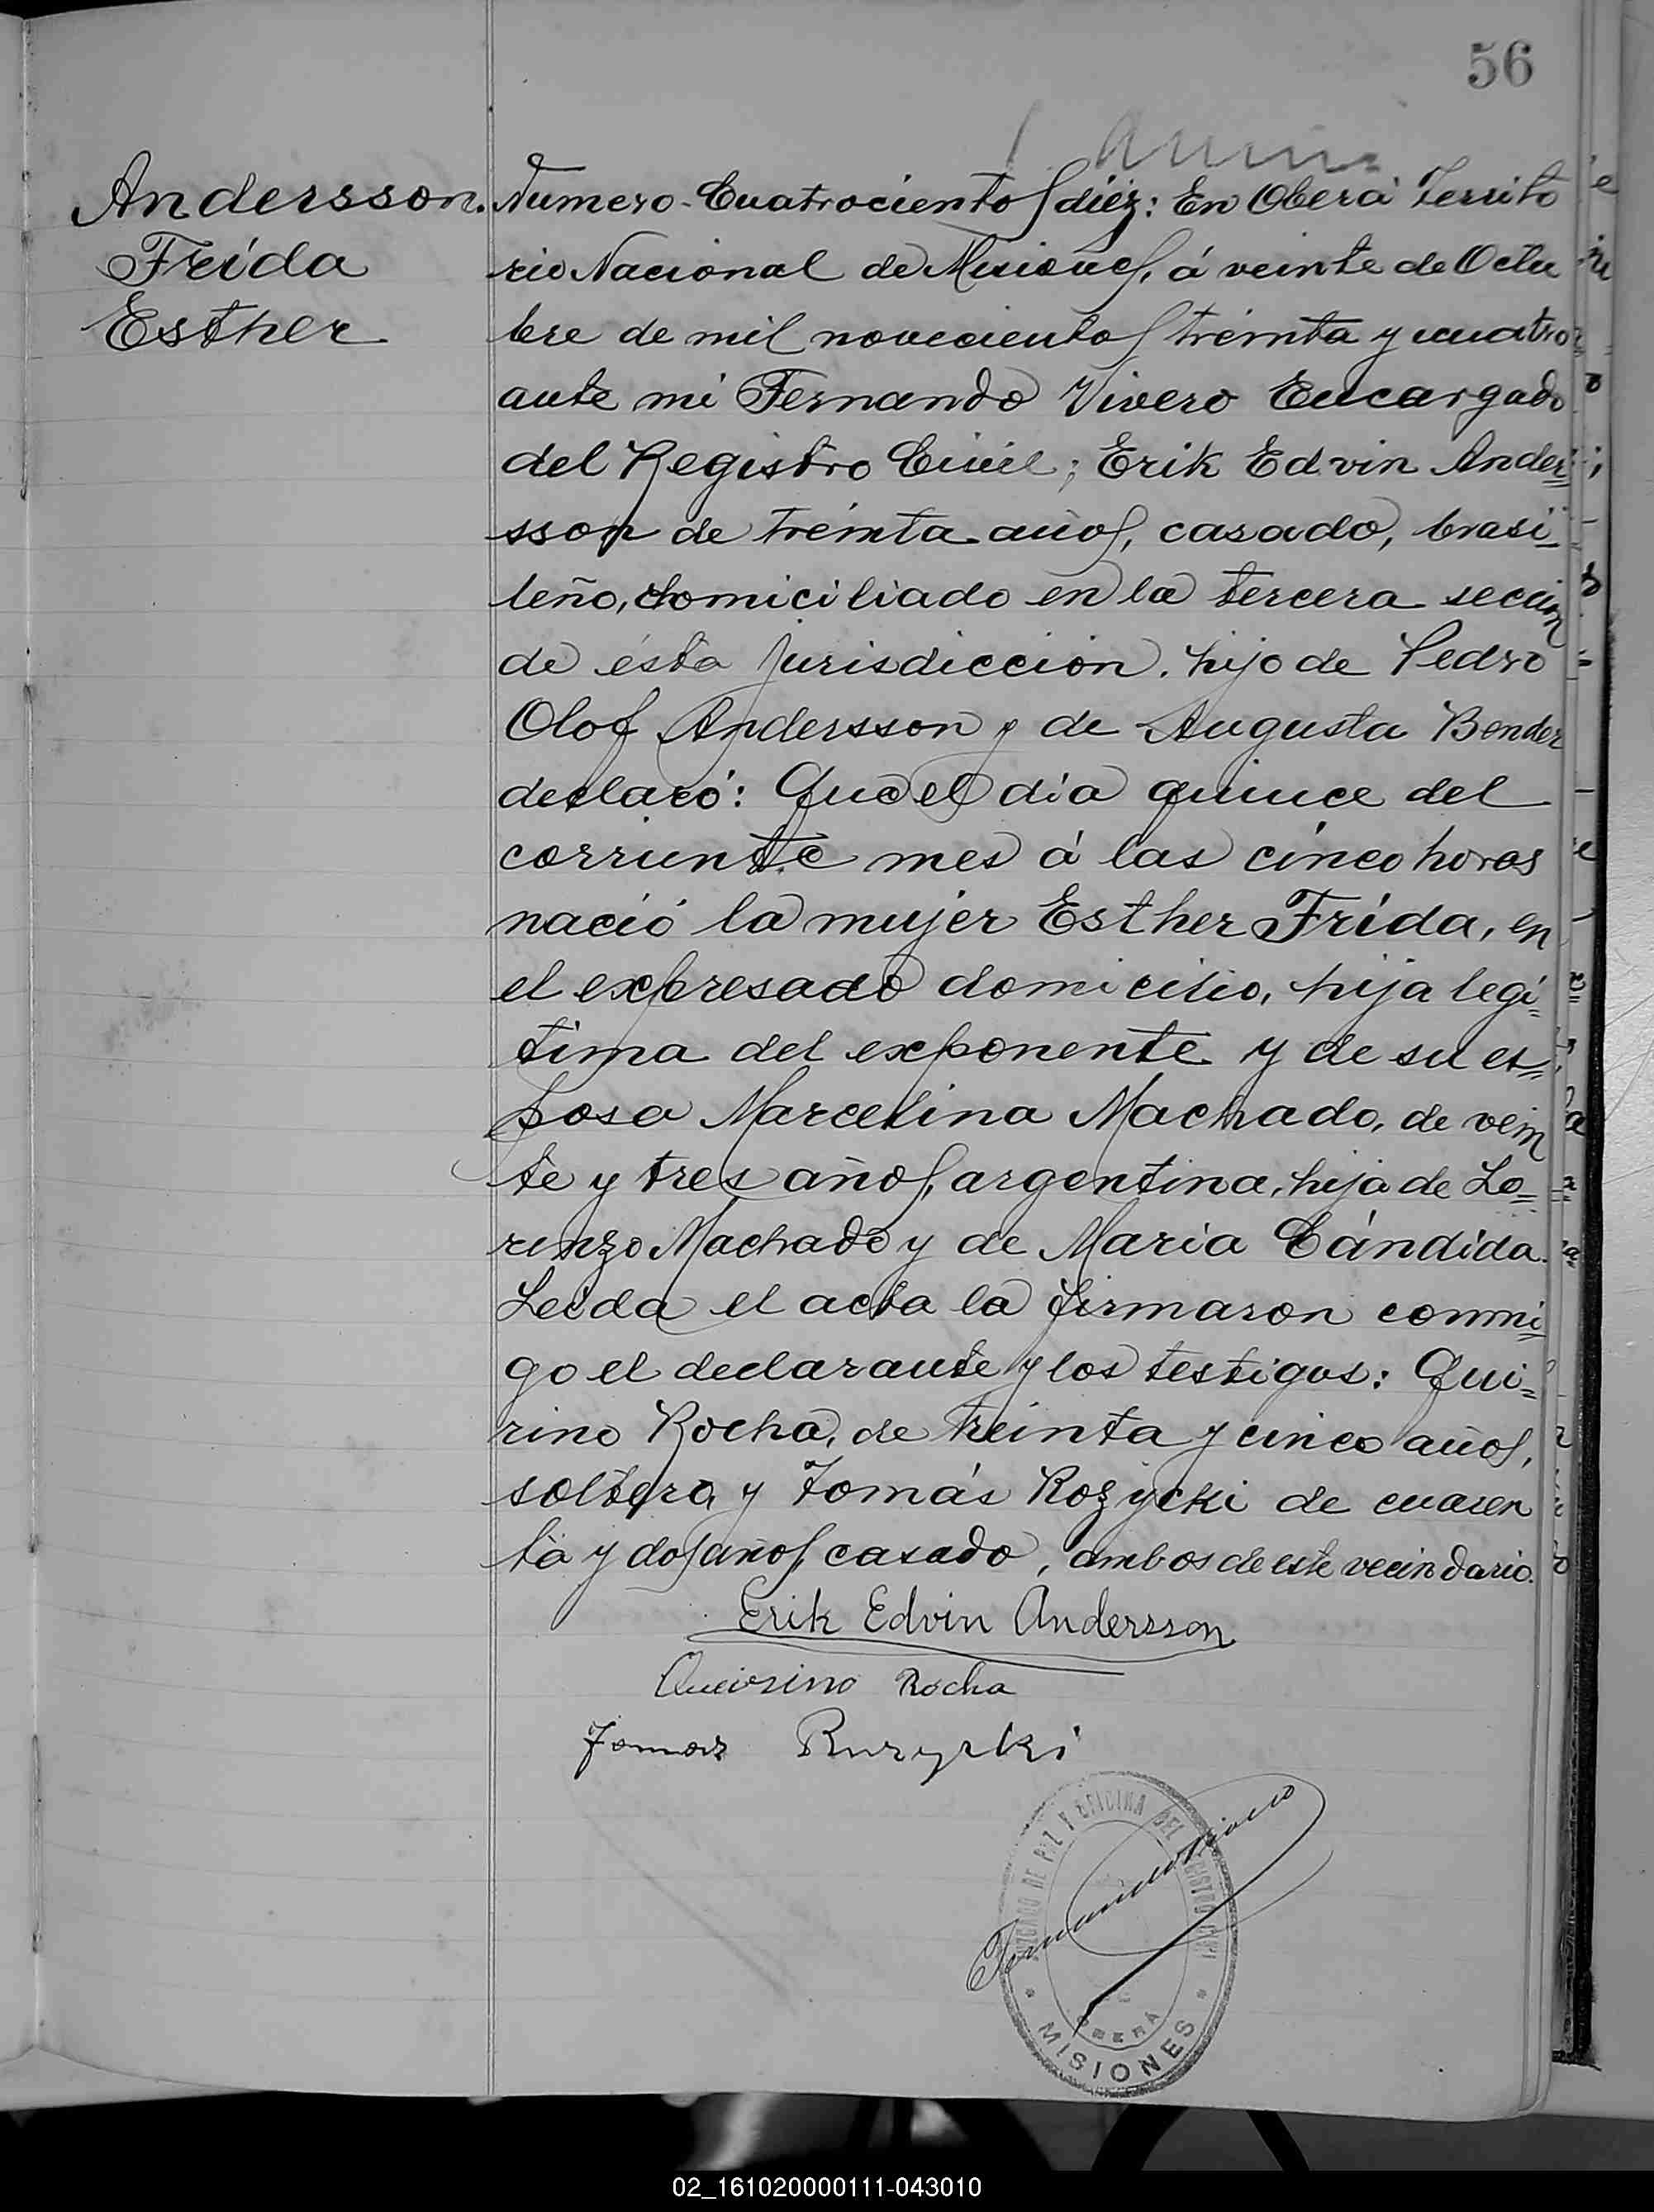 56
Andersson.
Frida
Esther
Número Cuatrocientos diéz: En Oberá Territo
rio Nacional de Misiones, á veinte de Octu
bre de mil novecientos treinta y cuatro
ante mi Fernando Vivero Encargado
del Registro Civil; Erik Edvin Ander=
sson de treinta años, casado, brasi=
leño, domiciliado en la tercera sección
de ésta jurisdicción. hijo de Pedro
Olof Andersson y de Augusta Bender
declaró: Que el día quince del
corriente mes á las cinco horas
nació la mujer Esther Frida, en
el expresado domicilio, hija legi=
tima del exponente y de su es=
posa Marcelina Machado, de vein
te y tres años, argentina, hija de Lo=
renzo Machado y de Maria Cándida.
Leida el acta la firmaron conmi=
go el declarante y los testigos: Qui=
rino Rocha, de treinta y cinco años,
soltero, y Tomás Rozycki de cuaren
ta y dos años, casado, ambos de este vecindario.
Erik Edvin Andersson
Queirino Rocha
Tomas Ruzycki
Fernando Vivero
JUZGADO DE PAZ Y OFICINA DEL REGISTRO CIVIL
OBERÁ
* MISIONES *
02_161020000111-043010